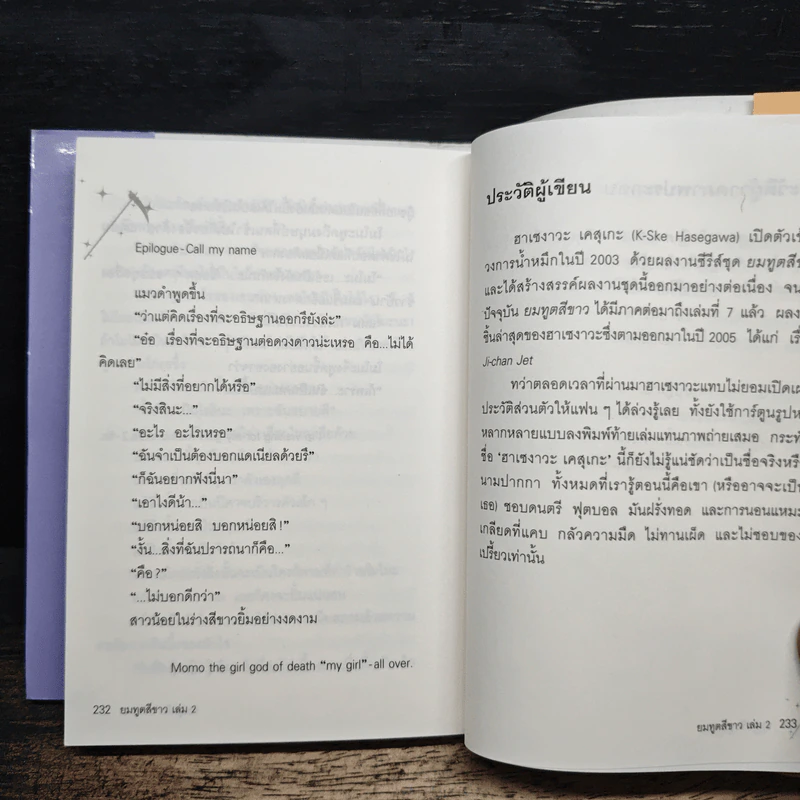 Epilogue-Call my name
แมวดำพูดขึ้น
“ว่าแต่คิดเรื่องที่จะอธิษฐานออกรึยังล่ะ”
“อ๋อ เรื่องที่จะอธิษฐานต่อดวงดาวน่ะเหรอ คือ...ไม่ได้
คิดเลย”
“ไม่มีสิ่งที่อยากได้หรือ”
“จริงสินะ...”
“อะไร อะไรเหรอ”
“ฉันจำเป็นต้องบอกแดเนียลด้วยรึ”
“ก็ฉันอยากฟังนี่นา”
“เอาไงดีน้า...”
“บอกหน่อยสิ บอกหน่อยสิ!”
“งั้น...สิ่งที่ฉันปรารถนาก็คือ...”
“คือ?”
“...ไม่บอกดีกว่า”
สาวน้อยในร่างสีขาวยิ้มอย่างงดงาม
Momo the girl god of death “my girl”-all over.
232 ยมทูตสีขาว เล่ม 2
ประวัติผู้เขียน
ฮาเซงาวะ เคสุเกะ (K-Ske Hasegawa) เปิดตัว
วงการน้ำหมึกในปี 2003 ด้วยผลงานซีรีส์ชุด
และได้สร้างสรรค์ผลงานชุดนี้ออกมาอย่างต่อเนื่อง
ปัจจุบัน ยมทูตสีขาว ได้มีภาคต่อมาถึงเล่มที่ 7 แล้ว
ชิ้นล่าสุดของฮาเซงาวะซึ่งตามออกมาในปี 2005 ได้แก่
Ji-chan Jet
ทว่าตลอดเวลาที่ผ่านมาฮาเซงาวะแทบไม่ยอมเปิด
ประวัติส่วนตัวให้แฟน ๆ ได้ล่วงรู้เลย ทั้งยังใช้การ์ตูนรูป
หลากหลายแบบลงพิมพ์ท้ายเล่มแทนภาพถ่ายเสมอ
ชื่อ ‘ฮาเซงาวะ เคสุเกะ’ นี้ก็ยังไม่รู้แน่ชัดว่าเป็นชื่อจริง
นามปากกา ทั้งหมดที่เรารู้ตอนนี้คือเขา (หรืออาจจะ
เธอ) ชอบดนตรี ฟุตบอล มันฝรั่งทอด และการนอน
เกลียดที่แคบ กลัวความมืด ไม่ทานเผ็ด และไม่ชอบของ
เปรี้ยวเท่านั้น
ยมทูตสีขาว เล่ม 2 233